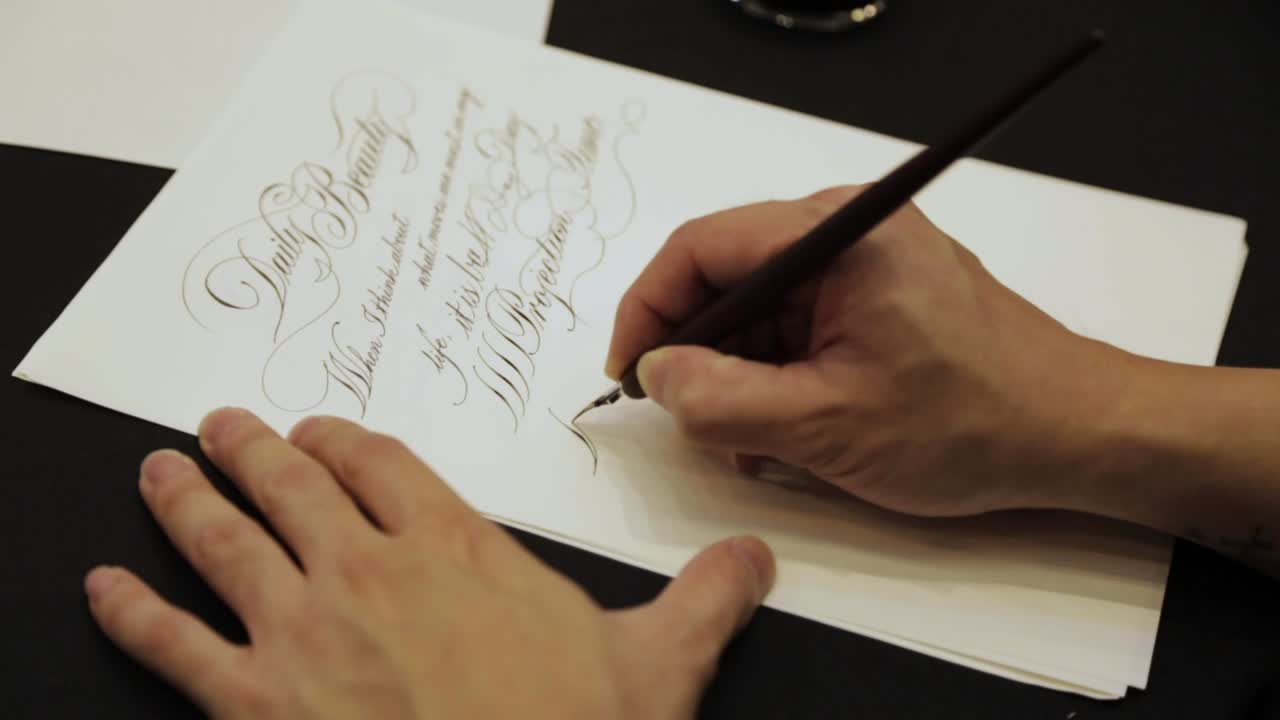 Daily Beauty
When I think about
what moves me most in my
life, it is
Projection